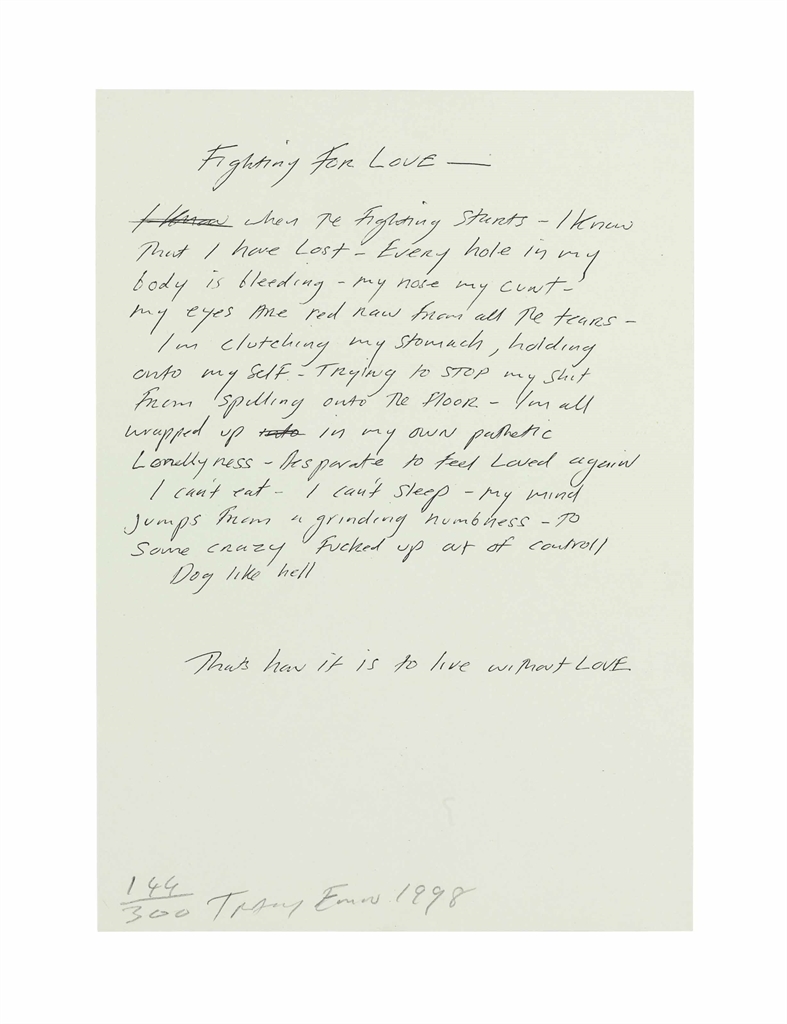 Fighting FOR LOVE —
I know when The Fighting Starts - I Know
That I have Lost - Every hole in my
body is bleeding - my nose my cunt -
my eyes Are red raw from all The tears -
I'm clutching my stomach, holding
onto my self - Trying to STOP my shit
from spilling onto The Floor - I'm all
wrapped up into in my own pathetic
Lonellyness - Desparate to feel Loved again
I can't eat - I can't sleep - my mind
jumps from a grinding numbness - To
some crazy Fucked up out of controll
Dog like hell
Thats how it is to live without LOVE
144
300 Tracey Emin 1998